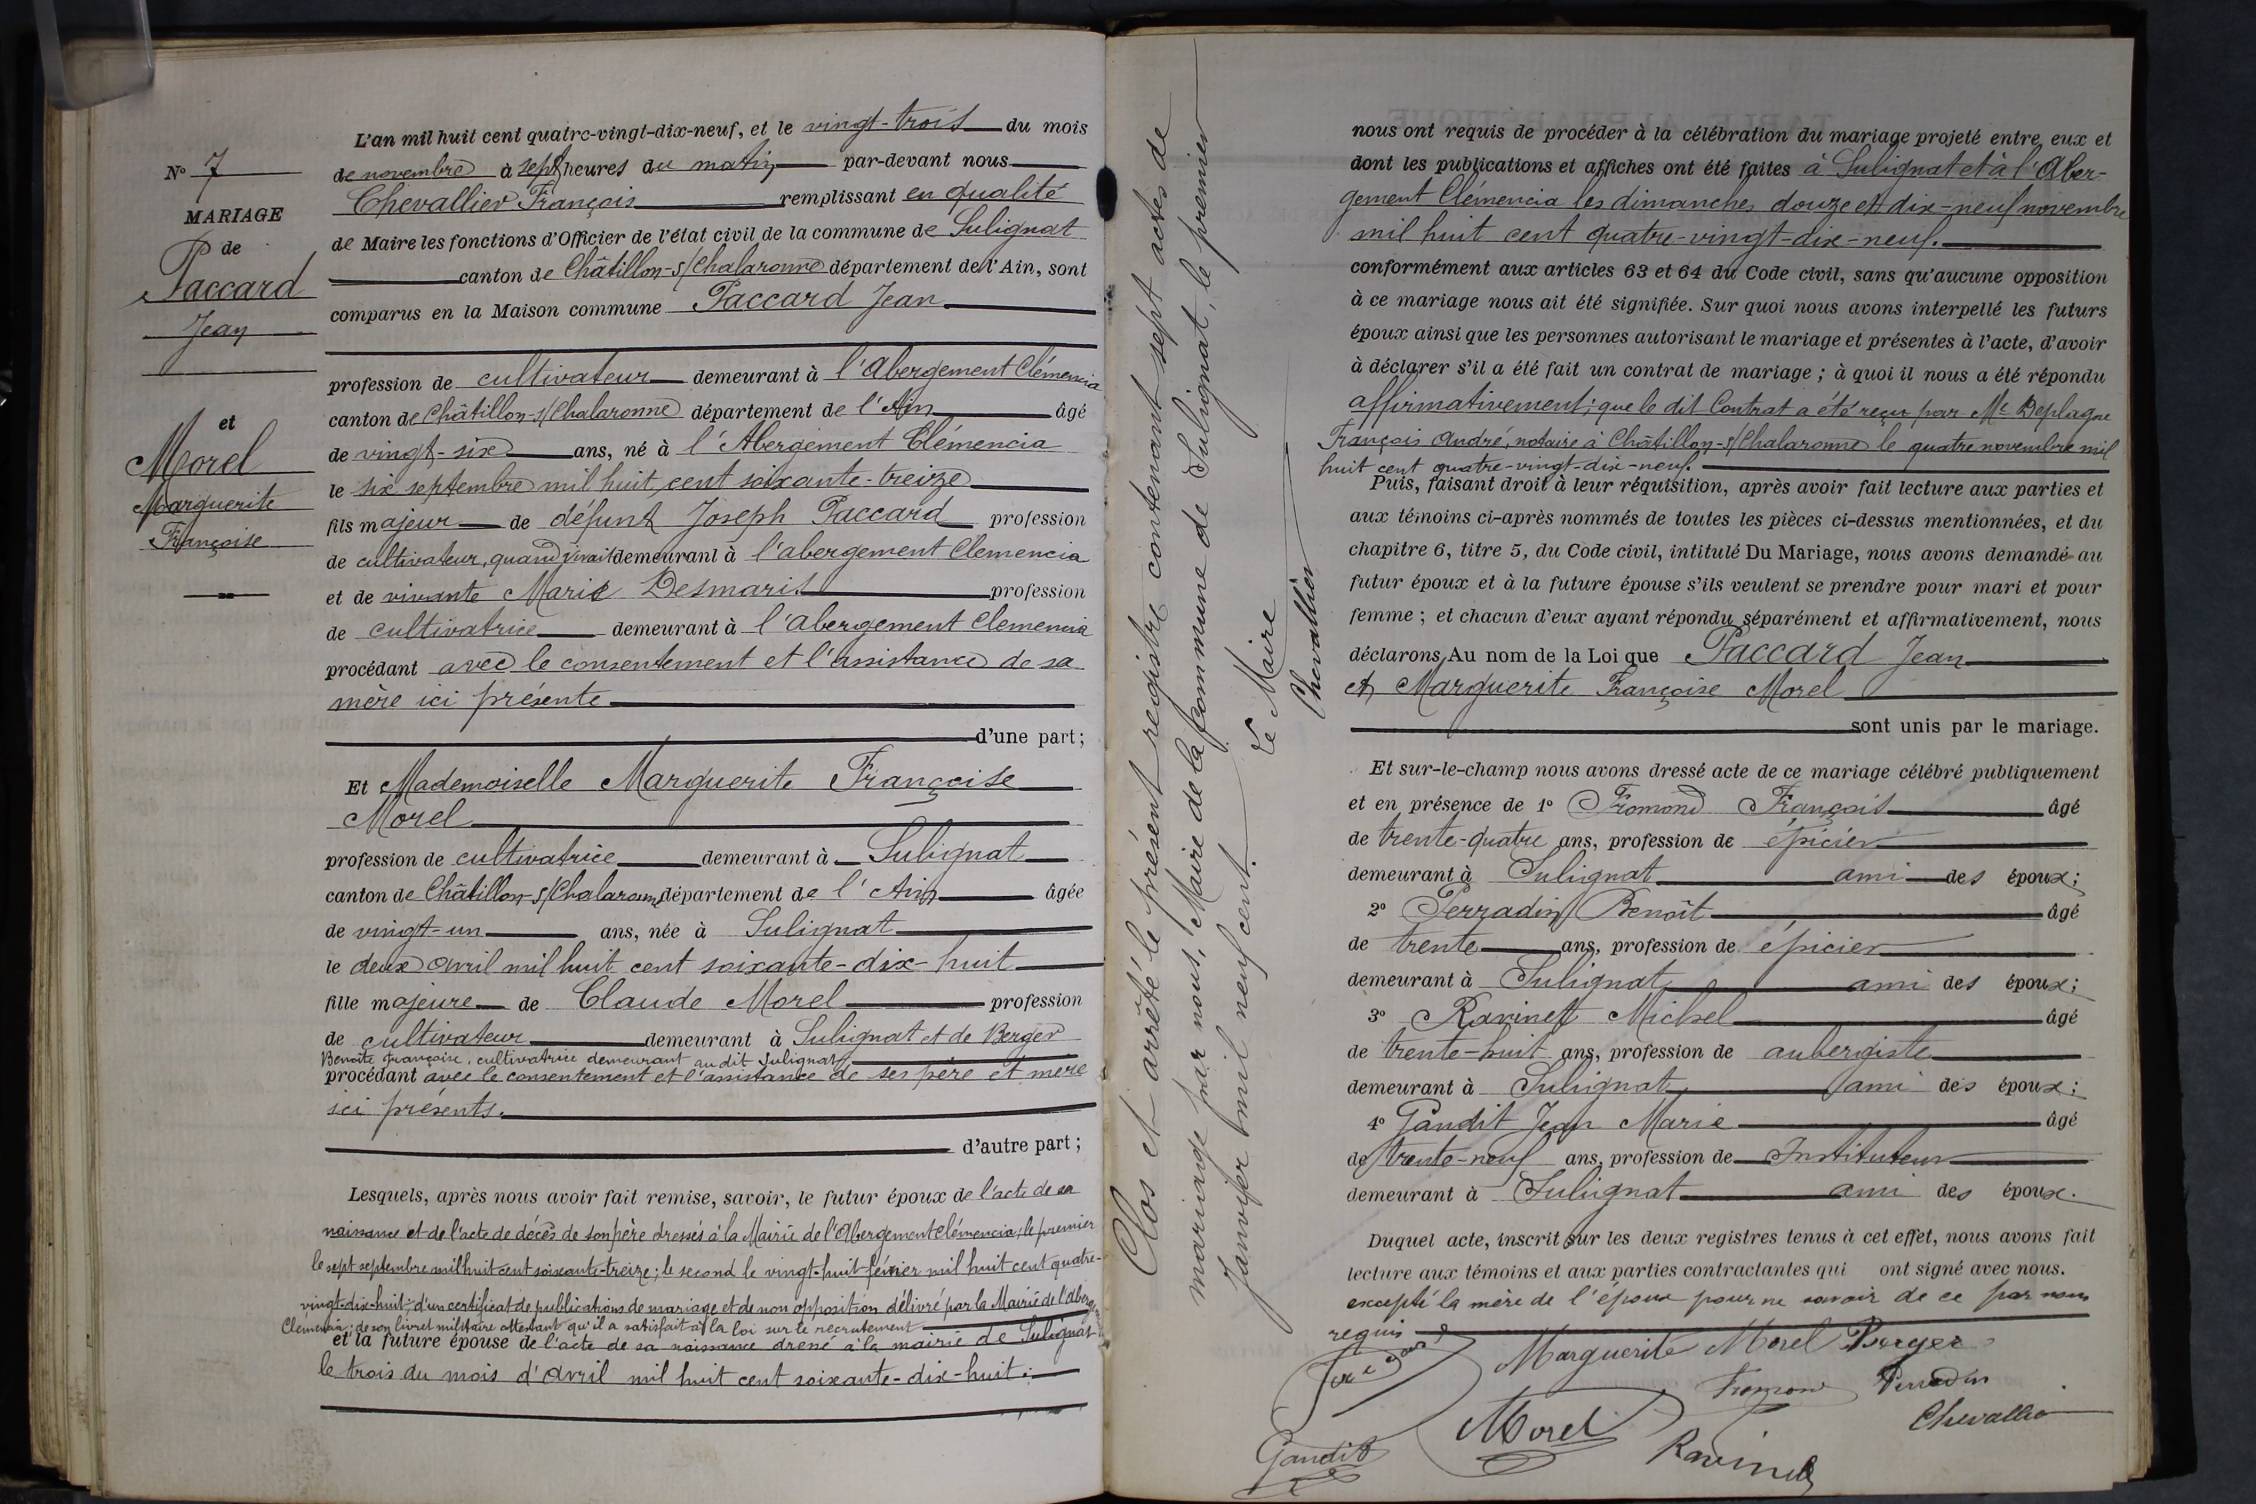 N° 7
MARIAGE
de
Paccard
Jean
et
Morel
Marguerite
Françoise
L'an mil huit cent quatre-vingt-dix-neuf, et le vingt-trois du mois
de novembre à sept heures du matin par-devant nous
Chevallier François remplissant en qualité
de Maire les fonctions d'Officier de l'état civil de la commune de Sulignat
canton de Châtillon-s/Chalaronne département de l'Ain, sont
comparus en la Maison commune Paccard Jean
profession de cultivateur demeurant à l'Abergement Clémencia
canton de Châtillon-s/Chalaronne département de l'Ain âgé
de vingt-six ans, né à l'Abergement Clémencia
le six septembre mil huit cent soixante-treize
fils majeur de défunt Joseph Paccard profession
de cultivateur, quand vivait demeurant à l'abergement Clemencia
et de vivante Marie Desmaris profession
de cultivatrice demeurant à l'abergement Clemencia
procédant avec le consentement et l'assistance de sa
mère ici présente
d'une part;
Et Mademoiselle Marguerite Françoise
Morel
profession de cultivatrice demeurant à Sulignat
canton de Châtillon-s/Chalaronne département de l'Ain âgée
de vingt-un ans, née à Sulignat
le deux avril mil huit cent soixante-dix-huit
fille majeure de Claude Morel profession
de cultivateur demeurant à Sulignat et de Berger
Benoîte Françoise, cultivatrice demeurant au dit Sulignat
procédant avec le consentement et l'assistance de ses père et mère
ici présents.
d'autre part;
Lesquels, après nous avoir fait remise, savoir, le futur époux de l'acte de sa
naissance et de l'acte de décès de son père dressés à la Mairie de l'Abergement Clémencia, le premier
le sept septembre mil huit cent soixante-treize; le second le vingt-huit février mil huit cent quatre-
vingt-dix-huit; d'un certificat de publications de mariage et de non opposition délivré par la Mairie de l'Aberge
Clémencia; de son livret militaire attestant qu'il a satisfait à la loi sur le recrutement
et la future épouse de l'acte de sa naissance dressé à la mairie de Sulignat
le trois du mois d'avril mil huit cent soixante-dix-huit;
Clos et arrêté le présent registre contenant sept actes de
mariage par nous, Maire de la commune de Sulignat, le premier
Janvier mil neuf cent.
Le Maire
Chevallier
nous ont requis de procéder à la célébration du mariage projeté entre eux et
dont les publications et affiches ont été faites à Sulignat et à l'Aber-
gement Clémencia les dimanches douze et dix-neuf novembre
mil huit cent quatre-vingt-dix-neuf.
conformément aux articles 63 et 64 du Code civil, sans qu'aucune opposition
à ce mariage nous ait été signifiée. Sur quoi nous avons interpellé les futurs
époux ainsi que les personnes autorisant le mariage et présentes à l'acte, d'avoir
à déclarer s'il a été fait un contrat de mariage; à quoi il nous a été répondu
affirmativement; que le dit Contrat a été reçu par Me Deplagne
François André, notaire à Châtillon-s/Chalaronne le quatre novembre mil
huit cent quatre-vingt-dix-neuf.
Puis, faisant droit à leur réquisition, après avoir fait lecture aux parties et
aux témoins ci-après nommés de toutes les pièces ci-dessus mentionnées, et du
chapitre 6, titre 5, du Code civil, intitulé Du Mariage, nous avons demandé au
futur époux et à la future épouse s'ils veulent se prendre pour mari et pour
femme; et chacun d'eux ayant répondu séparément et affirmativement, nous
déclarons, Au nom de la Loi que Paccard Jean
et Marguerite Françoise Morel
sont unis par le mariage.
Et sur-le-champ nous avons dressé acte de ce mariage célébré publiquement
et en présence de 1° Fromond François âgé
de trente-quatre ans, profession de épicier
demeurant à Sulignat ami des époux;
2° Perradin Benoît âgé
de trente ans, profession de épicier
demeurant à Sulignat ami des époux;
3° Ravinet Michel âgé
de trente-huit ans, profession de aubergiste
demeurant à Sulignat ami des époux;
4° Gandit Jean Marie âgé
de trente-neuf ans, profession de Instituteur
demeurant à Sulignat ami des époux.
Duquel acte, inscrit sur les deux registres tenus à cet effet, nous avons fait
lecture aux témoins et aux parties contractantes qui ont signé avec nous.
excepté la mère de l'époux pour ne savoir de ce par nous
requis
Marguerite Morel Berger
Fromond Perradin
Chevallier
Morel
Gandit
Ravinet